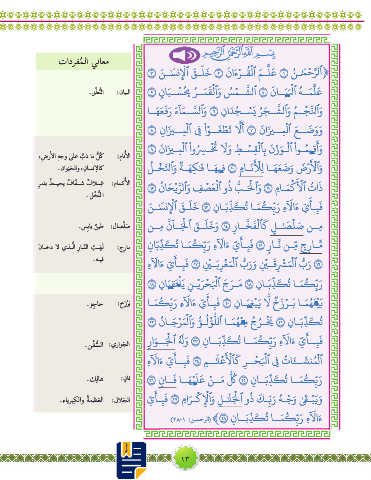 بِسْمِ اللَّهِ الرَّحْمَٰنِ الرَّحِيمِ
﴿الرَّحْمَٰنُ ۝١ عَلَّمَ الْقُرْءَانَ ۝٢ خَلَقَ الْإِنسَٰنَ ۝٣
عَلَّمَهُ الْبَيَانَ ۝٤ الشَّمْسُ وَالْقَمَرُ بِحُسْبَانٍ ۝٥
وَالنَّجْمُ وَالشَّجَرُ يَسْجُدَانِ ۝٦ وَالسَّمَاءَ رَفَعَهَا
وَوَضَعَ الْمِيزَانَ ۝٧ أَلَّا تَطْغَوْا فِي الْمِيزَانِ ۝٨
وَأَقِيمُوا الْوَزْنَ بِالْقِسْطِ وَلَا تُخْسِرُوا الْمِيزَانَ ۝٩
وَالْأَرْضَ وَضَعَهَا لِلْأَنَامِ ۝١٠ فِيهَا فَٰكِهَةٌ وَالنَّخْلُ
ذَاتُ الْأَكْمَامِ ۝١١ وَالْحَبُّ ذُو الْعَصْفِ وَالرَّيْحَانُ ۝١٢
فَبِأَيِّ ءَالَاءِ رَبِّكُمَا تُكَذِّبَانِ ۝١٣ خَلَقَ الْإِنسَٰنَ
مِن صَلْصَٰلٍ كَالْفَخَّارِ ۝١٤ وَخَلَقَ الْجَانَّ مِن
مَّارِجٍ مِّن نَّارٍ ۝١٥ فَبِأَيِّ ءَالَاءِ رَبِّكُمَا تُكَذِّبَانِ
۝١٦ رَبُّ الْمَشْرِقَيْنِ وَرَبُّ الْمَغْرِبَيْنِ ۝١٧ فَبِأَيِّ ءَالَاءِ
رَبِّكُمَا تُكَذِّبَانِ ۝١٨ مَرَجَ الْبَحْرَيْنِ يَلْتَقِيَانِ ۝١٩
بَيْنَهُمَا بَرْزَخٌ لَّا يَبْغِيَانِ ۝٢٠ فَبِأَيِّ ءَالَاءِ رَبِّكُمَا
تُكَذِّبَانِ ۝٢١ يَخْرُجُ مِنْهُمَا اللُّؤْلُؤُ وَالْمَرْجَانُ ۝٢٢
فَبِأَيِّ ءَالَاءِ رَبِّكُمَا تُكَذِّبَانِ ۝٢٣ وَلَهُ الْجَوَارِ
الْمُنشَـَٔاتُ فِي الْبَحْرِ كَالْأَعْلَٰمِ ۝٢٤ فَبِأَيِّ ءَالَاءِ
رَبِّكُمَا تُكَذِّبَانِ ۝٢٥ كُلُّ مَنْ عَلَيْهَا فَانٍ ۝٢٦
وَيَبْقَىٰ وَجْهُ رَبِّكَ ذُو الْجَلَٰلِ وَالْإِكْرَامِ ۝٢٧ فَبِأَيِّ
ءَالَاءِ رَبِّكُمَا تُكَذِّبَانِ ۝٢٨﴾ (الرحمن: ١-٢٨)
معاني المُفردات
البيان: النُّطق.
الأنام: كلُّ ما دبَّ على وجهِ الأرضِ،
كالإنسانِ، والحيوانِ.
الأكمام: غِلافٌ شفّافٌ يحيطُ بثمرِ
النَّخْل.
صلصال: طينٌ يابس.
مارج: لَهَبُ النّارِ الَّذي لا دخانَ
فيه.
برزخ: حاجِز.
الجواري: السُّفُن.
فانٍ: هالك.
الجلال: العَظَمةُ والكِبرياء.
١٣